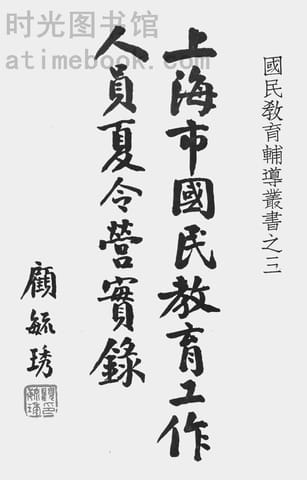 时光图书馆
atimebook.com
國民教育輔導叢書之三
上海市國民教育工作
人員夏令營實錄
顧毓琇